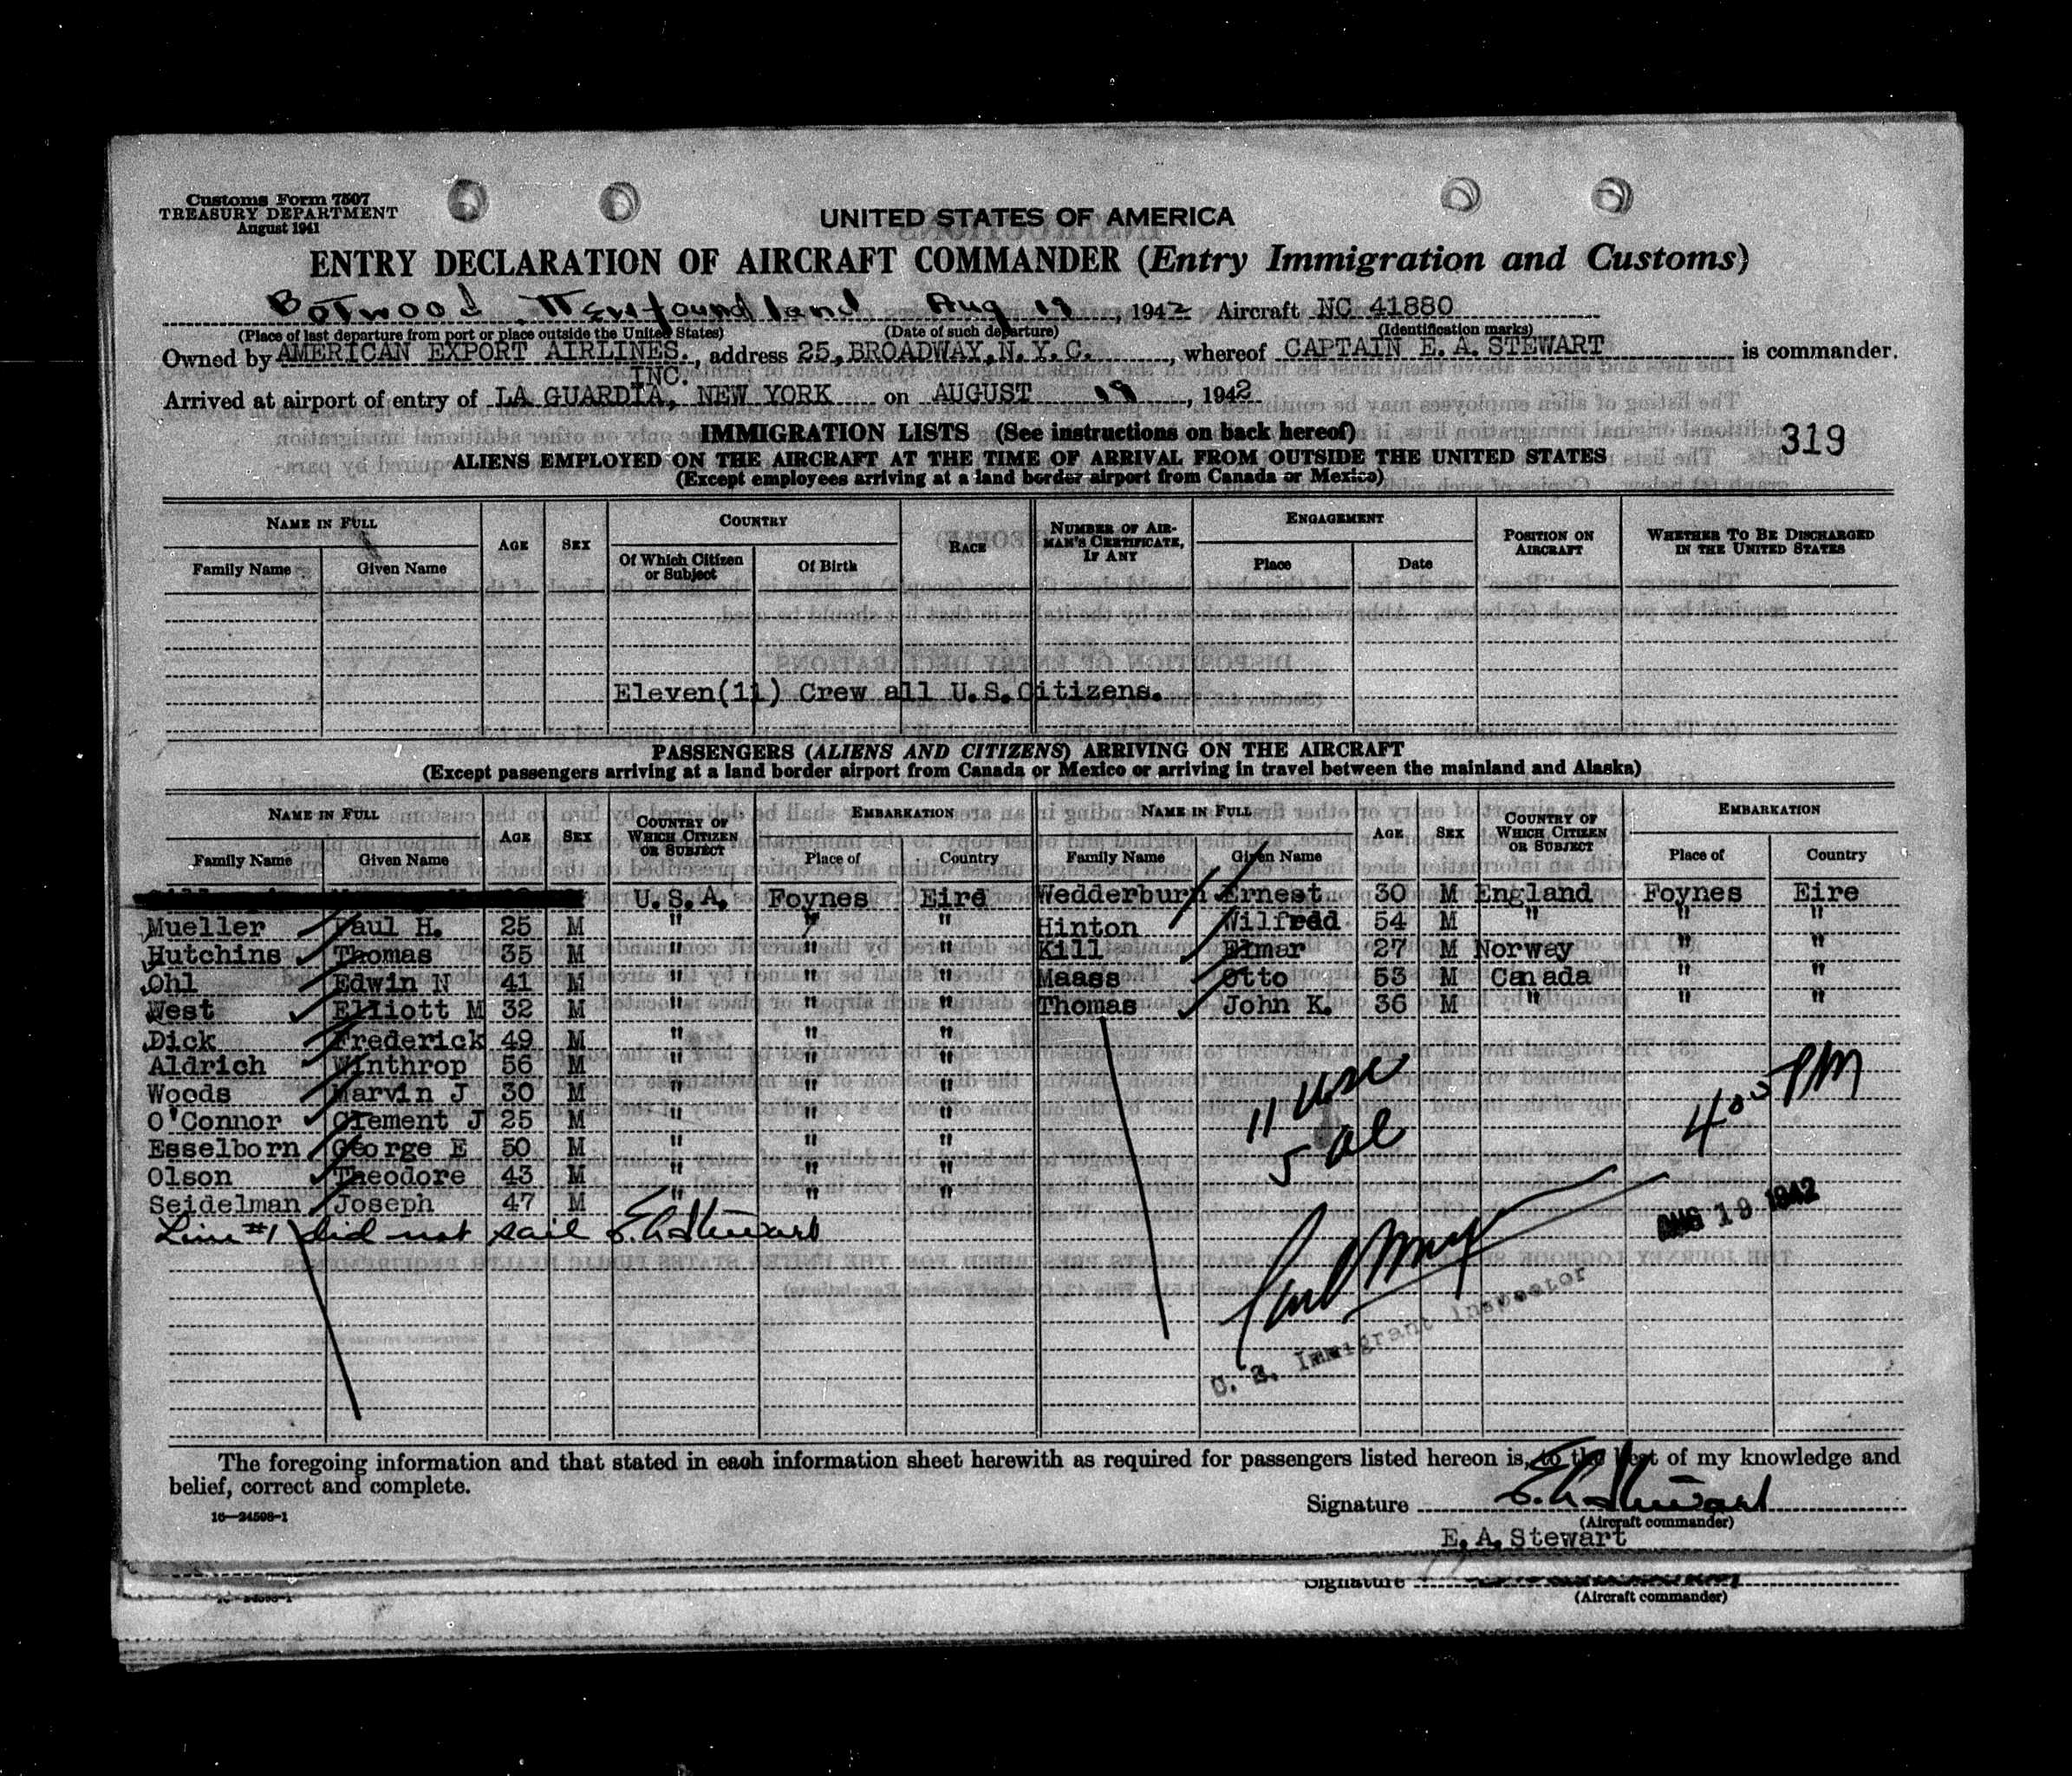 Customs Form 7507
TREASURY DEPARTMENT
August 1941
UNITED STATES OF AMERICA
ENTRY DECLARATION OF AIRCRAFT COMMANDER (Entry Immigration and Customs)
Botwood, Newfoundland Aug 19, 1942 Aircraft NC 41880
(Place of last departure from port or place outside the United States) (Date of such departure) (Identification marks)
Owned by AMERICAN EXPORT AIRLINES, INC., address 25, BROADWAY, N. Y. C., whereof CAPTAIN E. A. STEWART is commander.
Arrived at airport of entry of LA GUARDIA, NEW YORK on AUGUST 19, 1942
IMMIGRATION LISTS (See instructions on back hereof)
319
ALIENS EMPLOYED ON THE AIRCRAFT AT THE TIME OF ARRIVAL FROM OUTSIDE THE UNITED STATES
(Except employees arriving at a land border airport from Canada or Mexico)
NAME IN FULL AGE SEX COUNTRY RACE NUMBER OF AIRMAN'S CERTIFICATE, IF ANY ENGAGEMENT POSITION ON AIRCRAFT WHETHER TO BE DISCHARGED IN THE UNITED STATES
Family Name Given Name Of Which Citizen or Subject Of Birth Place Date
Eleven(11) Crew all U.S.Citizens.
PASSENGERS (ALIENS AND CITIZENS) ARRIVING ON THE AIRCRAFT
(Except passengers arriving at a land border airport from Canada or Mexico or arriving in travel between the mainland and Alaska)
NAME IN FULL AGE SEX COUNTRY OF WHICH CITIZEN OR SUBJECT EMBARKATION NAME IN FULL AGE SEX COUNTRY OF WHICH CITIZEN OR SUBJECT EMBARKATION
Family Name Given Name Place of Country Family Name Given Name Place of Country
U.S.A. Foynes Eire Wedderburn Ernest 30 M England Foynes Eire
Mueller Paul H. 25 M " " " Hinton Wilfred 54 M " " "
Hutchins Thomas 35 M " " " Kill Elmar 27 M Norway " "
Ohl Edwin N 41 M " " " Maass Otto 53 M Canada " "
West Elliott M 32 M " " " Thomas John K. 36 M " " "
Dick Frederick 49 M " " "
Aldrich Winthrop 56 M " " "
Woods Marvin J 30 M " " "
O'Connor Clement J 25 M " " "
Esselborn George E 50 M " " "
Olson Theodore 43 M " " "
Seidelman Joseph 47 M " " "
Line #1 did not sail E.A. Stewart
11 USC
5 al
4:00 PM
AUG 19 1942
U. S. Immigrant Inspector
The foregoing information and that stated in each information sheet herewith as required for passengers listed hereon is, to the best of my knowledge and
belief, correct and complete.
16—24508-1
Signature E.A. Stewart
(Aircraft commander)
E. A. Stewart
Signature
(Aircraft commander)